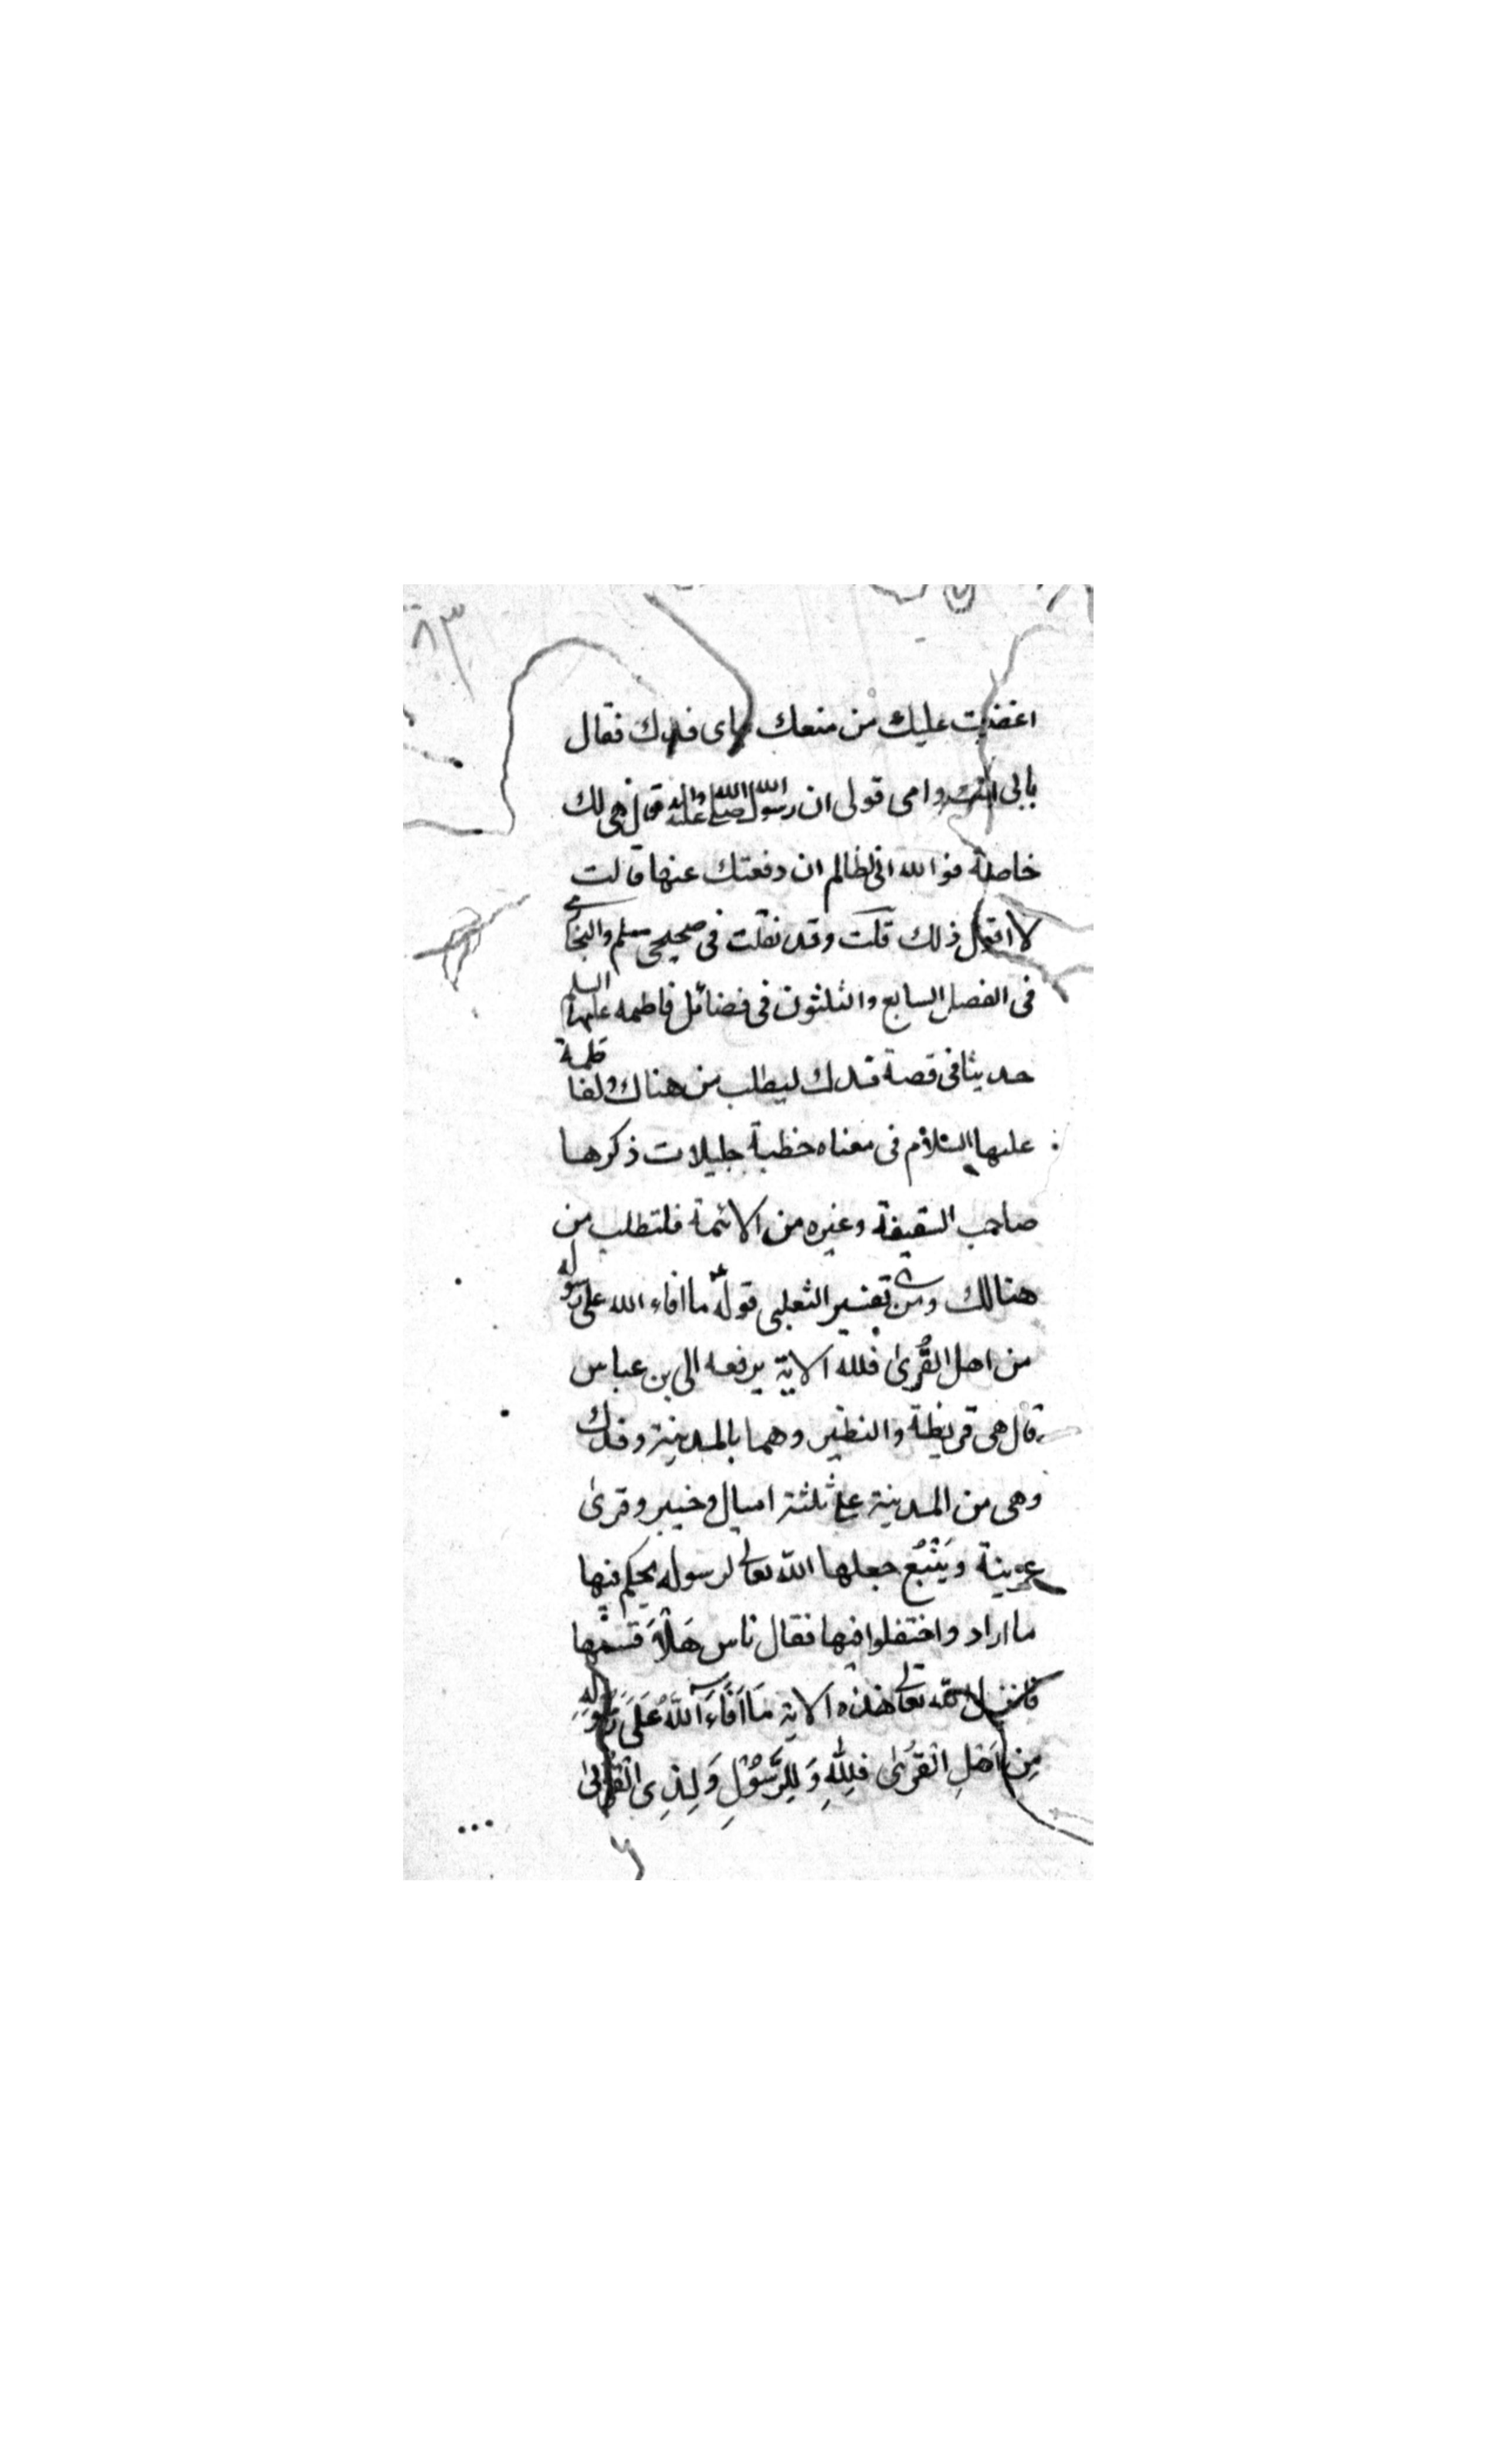 ٨٣
اغضيت عليك من منعك اباى فدك فقال
بابى انت وامى قولى ان رسول الله صلى الله عليه واله قال هى لك
خاصة فوالله انى لظالم ان دفعتك عنها قالت
لا اقول ذلك قلت وقد نقلت فى صحيحى مسلم والبخارى
فى الفصل السابع والثلثون فى فضائل فاطمه عليها السلم
حديثا فى قصة فدك ليطلب من هناك ولفاطمة
عليها السلام فى معناه خطبة جليلات ذكرها
صاحب السقيفة وغيره من الائمة فلتطلب من
هنالك ومن تفسير الثعلبى قوله ما افاء الله على رسوله
من اهل القُرىٰ فلله الاية يرفعه الى بن عباس
قال هى قريظة والنظير وهما بالمدينة وفدك
وهى من المدينة على ثلثة اميال وخيبر وقرىٰ
عرينة ويَنْبُع جعلها الله تعالى لرسوله يحكم فيها
ما اراد واختفلوا فيها فقال ناس هَلّاَ قسمها
فانزل الله تعالى هذه الاية مَا اَفَاءَ اللَّهُ عَلَى رَسُولِهِ
مِن اَهْلِ الْقُرىٰ فَلِلَّهِ وَلِلرَّسُوْلِ وَلِذِى الْقُرْبىٰ